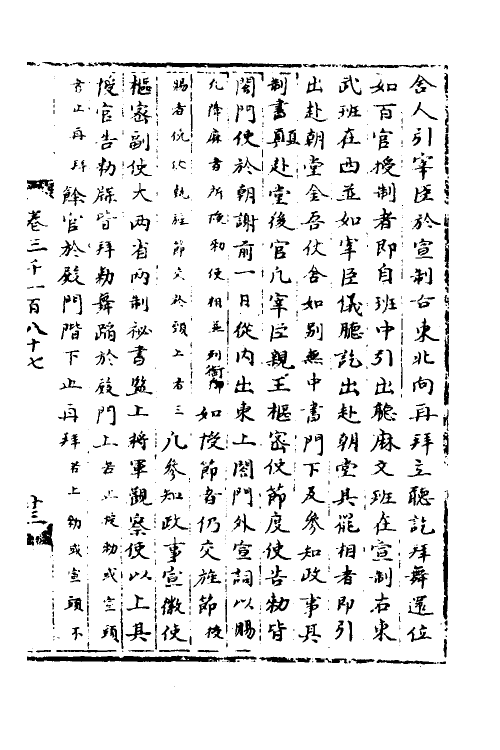 舍人引宰臣於宣制台東北向再拜立聽訖拜舞還位
如百官授制者即自班中引出聽麻文班在宣制右東
武班在西並如宰臣儀聽訖出赴朝堂其罷相者即引
出赴朝堂金吾仗舍如別無中書門下及參知政事具
制書顛赴堂後官凡宰臣親王樞密使節度使告勑皆
閤門使於朝謝前一日從内出東上閤門外宣詞以賜
凡降麻者所授勑使相並列銜 如授節者仍交旌節後
賜者仗仗執旌節交於頭上者三 凡參知政事宣徽使
樞密副使大兩省兩制祕書監上將軍觀察使以上具
授官告勑牒皆拜勑舞蹈於殿門上若止授勑或宣頭
者止再拜 餘官於殿門階下止再拜若上勑或宣頭不
卷三千一百八十七
十三